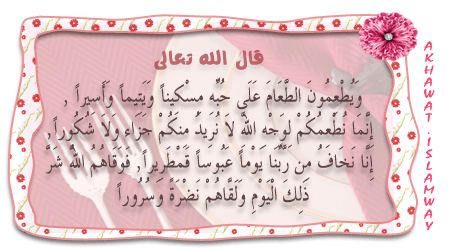 قال الله تعالى
وَيُطْعِمُونَ الطَّعَامَ عَلَى حُبِّهِ مِسْكِيناً وَيَتِيماً وَأَسِيراً ,
إِنَّمَا نُطْعِمُكُمْ لِوَجْهِ اللَّهِ لَا نُرِيدُ مِنكُمْ جَزَاء وَلَا شُكُوراً ,
إِنَّا نَخَافُ مِن رَّبِّنَا يَوْماً عَبُوساً قَمْطَرِيراً , فَوَقَاهُمُ اللَّهُ شَرَّ
ذَلِكَ الْيَوْمِ وَلَقَّاهُمْ نَضْرَةً وَسُرُوراً
AKHAWAT.ISLAMWAY